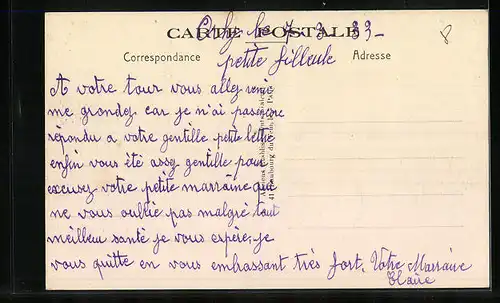 CARTE POSTALE
le 7 3 33
Correspondance
Adresse
petite filleule
A votre tour vous allez venir
me grondez car je n'ai pas encore
répondu a votre gentille petite lettre
enfin vous été assez gentille pour
excusez votre petite marraine qui
ne vous oublie pas malgré tout
meilleur santé je vous espère, je
vous quitte en vous embrassant très fort. Votre Marraine
Claire